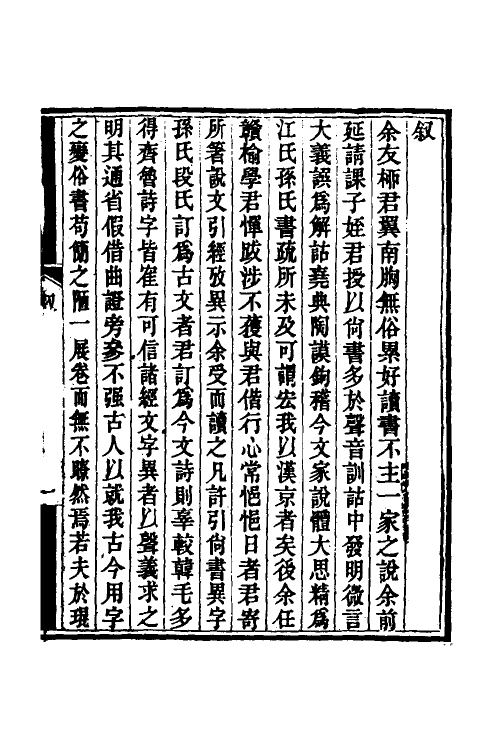 叙
余友柳君翼南胸無俗累好讀書不主一家之說余前
延請課子姪君授以尙書多於聲音訓詁中發明微言
大義誤爲解詁堯典陶謨鉤稽今文家說體大思精爲
江氏孫氏書疏所未及可謂宏我以漢京者矣後余任
贛榆學君憚跋涉不獲與君偕行心常悒悒日者君寄
所箸說文引經攷異示余受而讀之凡許引尙書異字
孫氏段氏訂爲古文者君訂爲今文詩則辜較韓毛多
得齊魯詩字皆隺有可信諸經文字異者以聲義求之
明其通省假借曲證旁參不强古人以就我古今用字
之變俗書苟簡之陋一展卷而無不瞭然焉若夫於現
叙
一